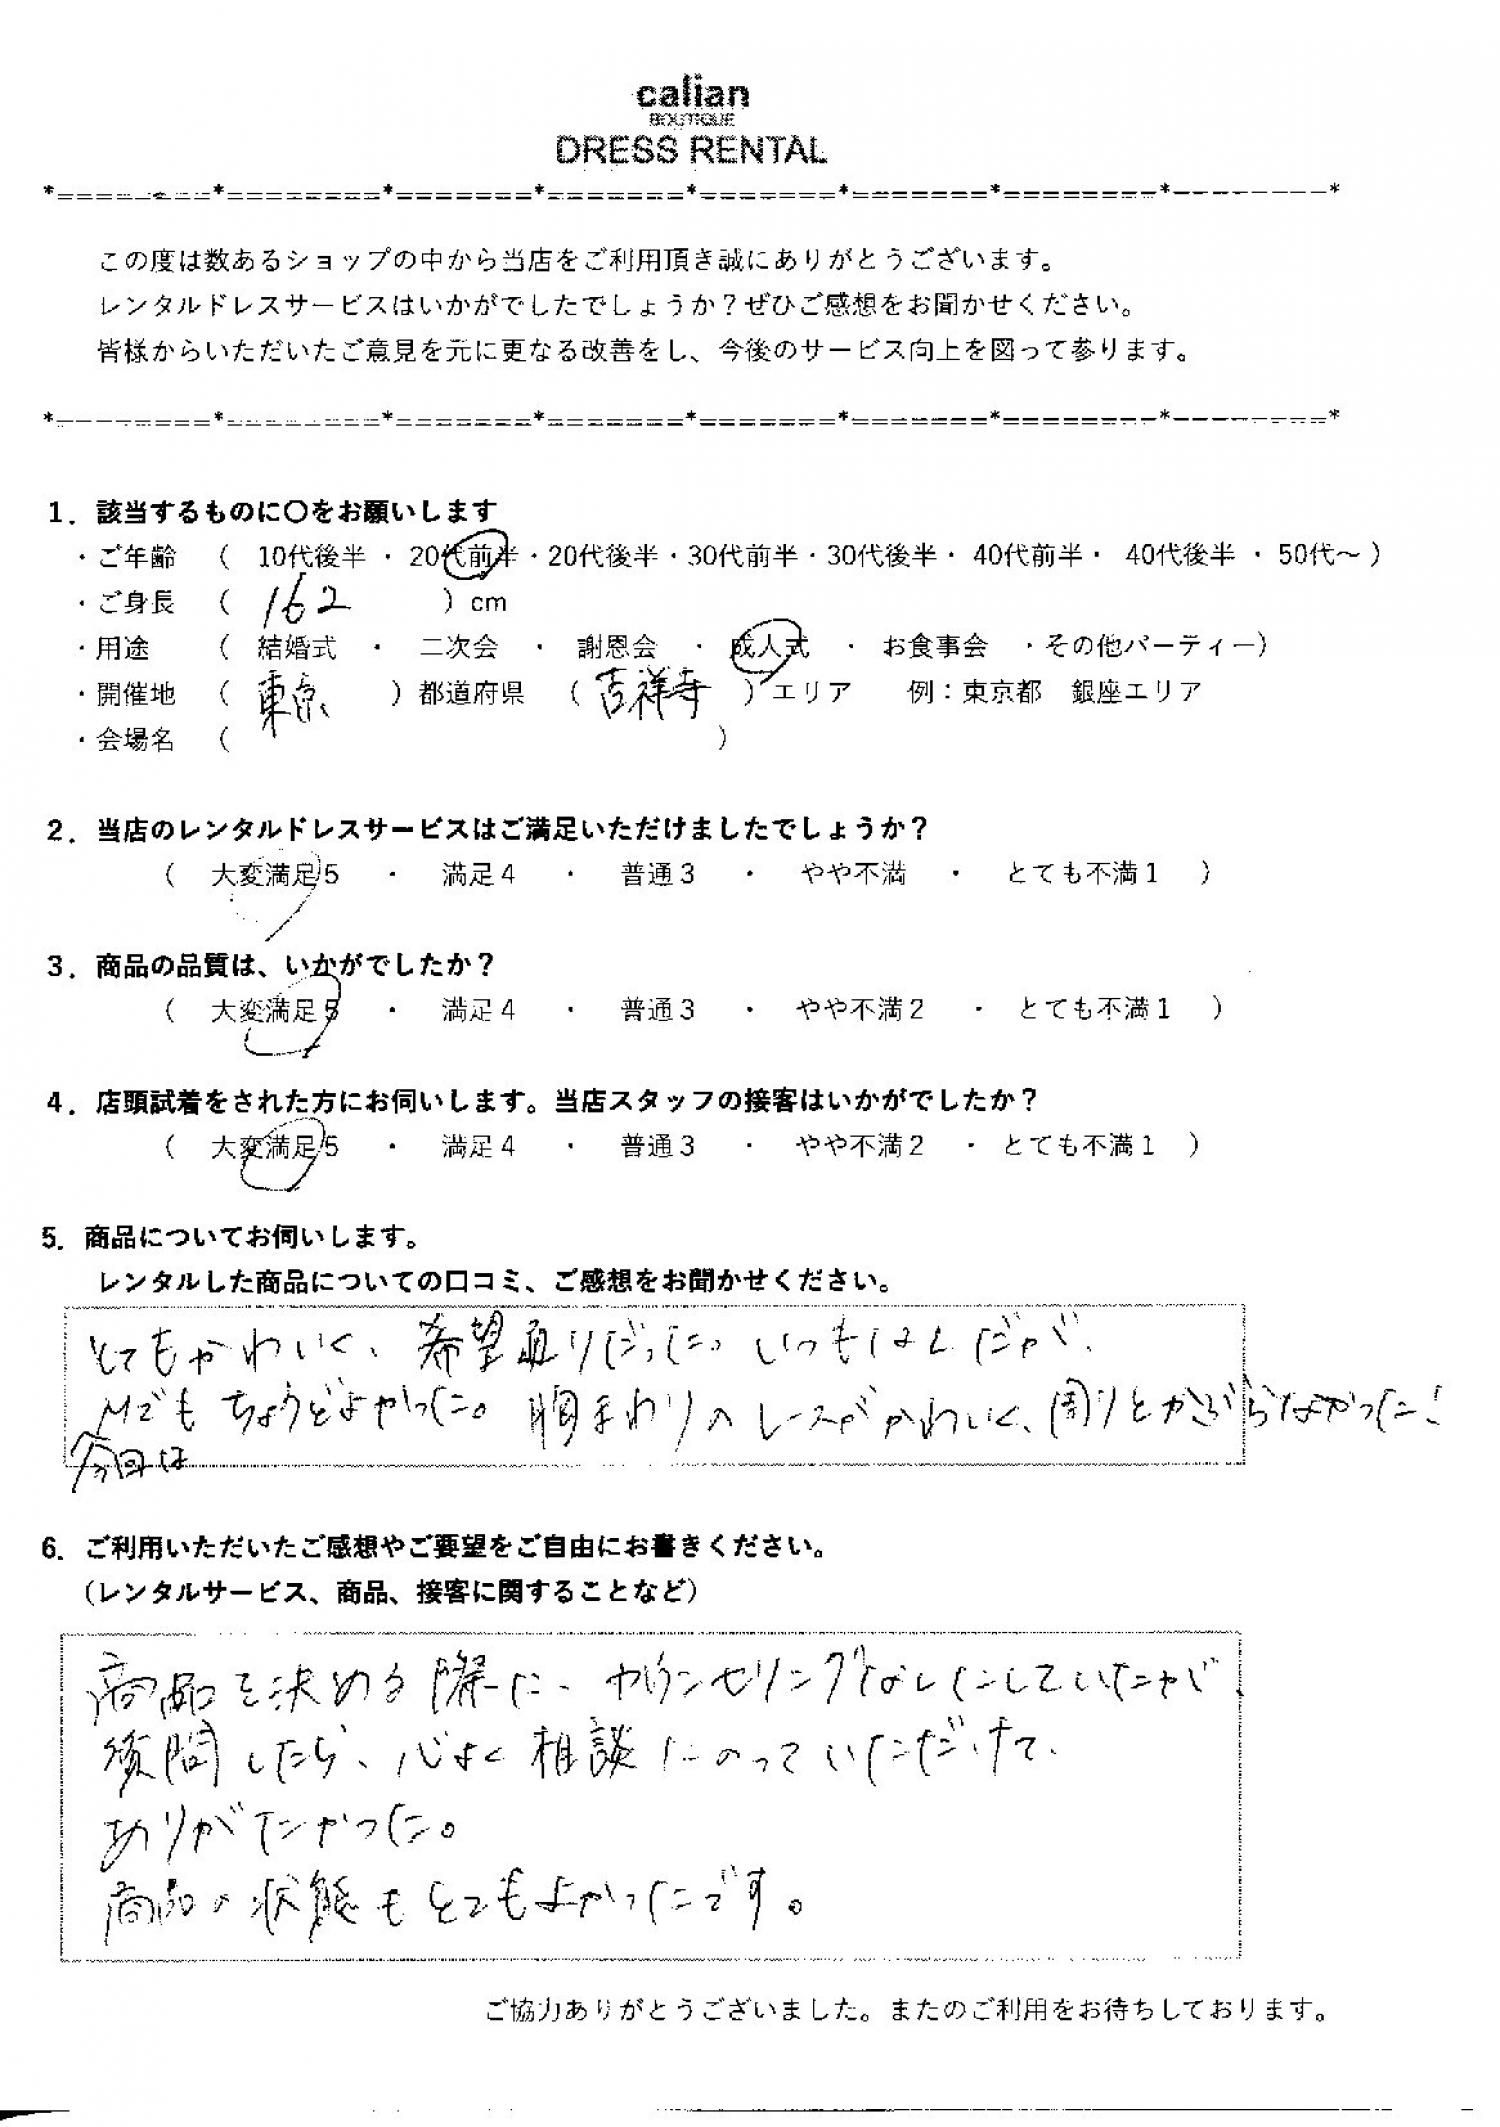 calian
BOUTIQUE
DRESS RENTAL
*========*========*=======*=======*=======*=======*========*========*
この度は数あるショップの中から当店をご利用頂き誠にありがとうございます。
レンタルドレスサービスはいかがでしたでしょうか？ぜひご感想をお聞かせください。
皆様からいただいたご意見を元に更なる改善をし、今後のサービス向上を図って参ります。
*========*========*=======*=======*=======*=======*========*========*
1．該当するものに〇をお願いします
・ご年齢 （ 10代後半 ・ 20代前半・20代後半・30代前半・30代後半・ 40代前半・ 40代後半 ・ 50代～ ）
・ご身長 （ 162 ）cm
・用途 （ 結婚式 ・ 二次会 ・ 謝恩会 ・ 成人式 ・ お食事会 ・その他パーティー）
・開催地 （ 東京 ）都道府県 （ 吉祥寺 ）エリア 例：東京都 銀座エリア
・会場名 （ ）
2．当店のレンタルドレスサービスはご満足いただけましたでしょうか？
（ 大変満足5 ・ 満足4 ・ 普通3 ・ やや不満 ・ とても不満1 ）
3．商品の品質は、いかがでしたか？
（ 大変満足5 ・ 満足4 ・ 普通3 ・ やや不満2 ・ とても不満1 ）
4．店頭試着をされた方にお伺いします。当店スタッフの接客はいかがでしたか？
（ 大変満足5 ・ 満足4 ・ 普通3 ・ やや不満2 ・ とても不満1 ）
5．商品についてお伺いします。
レンタルした商品についての口コミ、ご感想をお聞かせください。
とてもかわいく、希望通りだった。いつもはLだが、
Mでもちょうどよかった。胸まわりのレースがかわいく、周りとかぶらなかった！
今回は
6．ご利用いただいたご感想やご要望をご自由にお書きください。
（レンタルサービス、商品、接客に関することなど）
商品を決める際に、カウンセリングなしにしていたが、
質問したら、心よく相談にのっていただけて、
ありがたかった。
商品の状態もとてもよかったです。
ご協力ありがとうございました。またのご利用をお待ちしております。